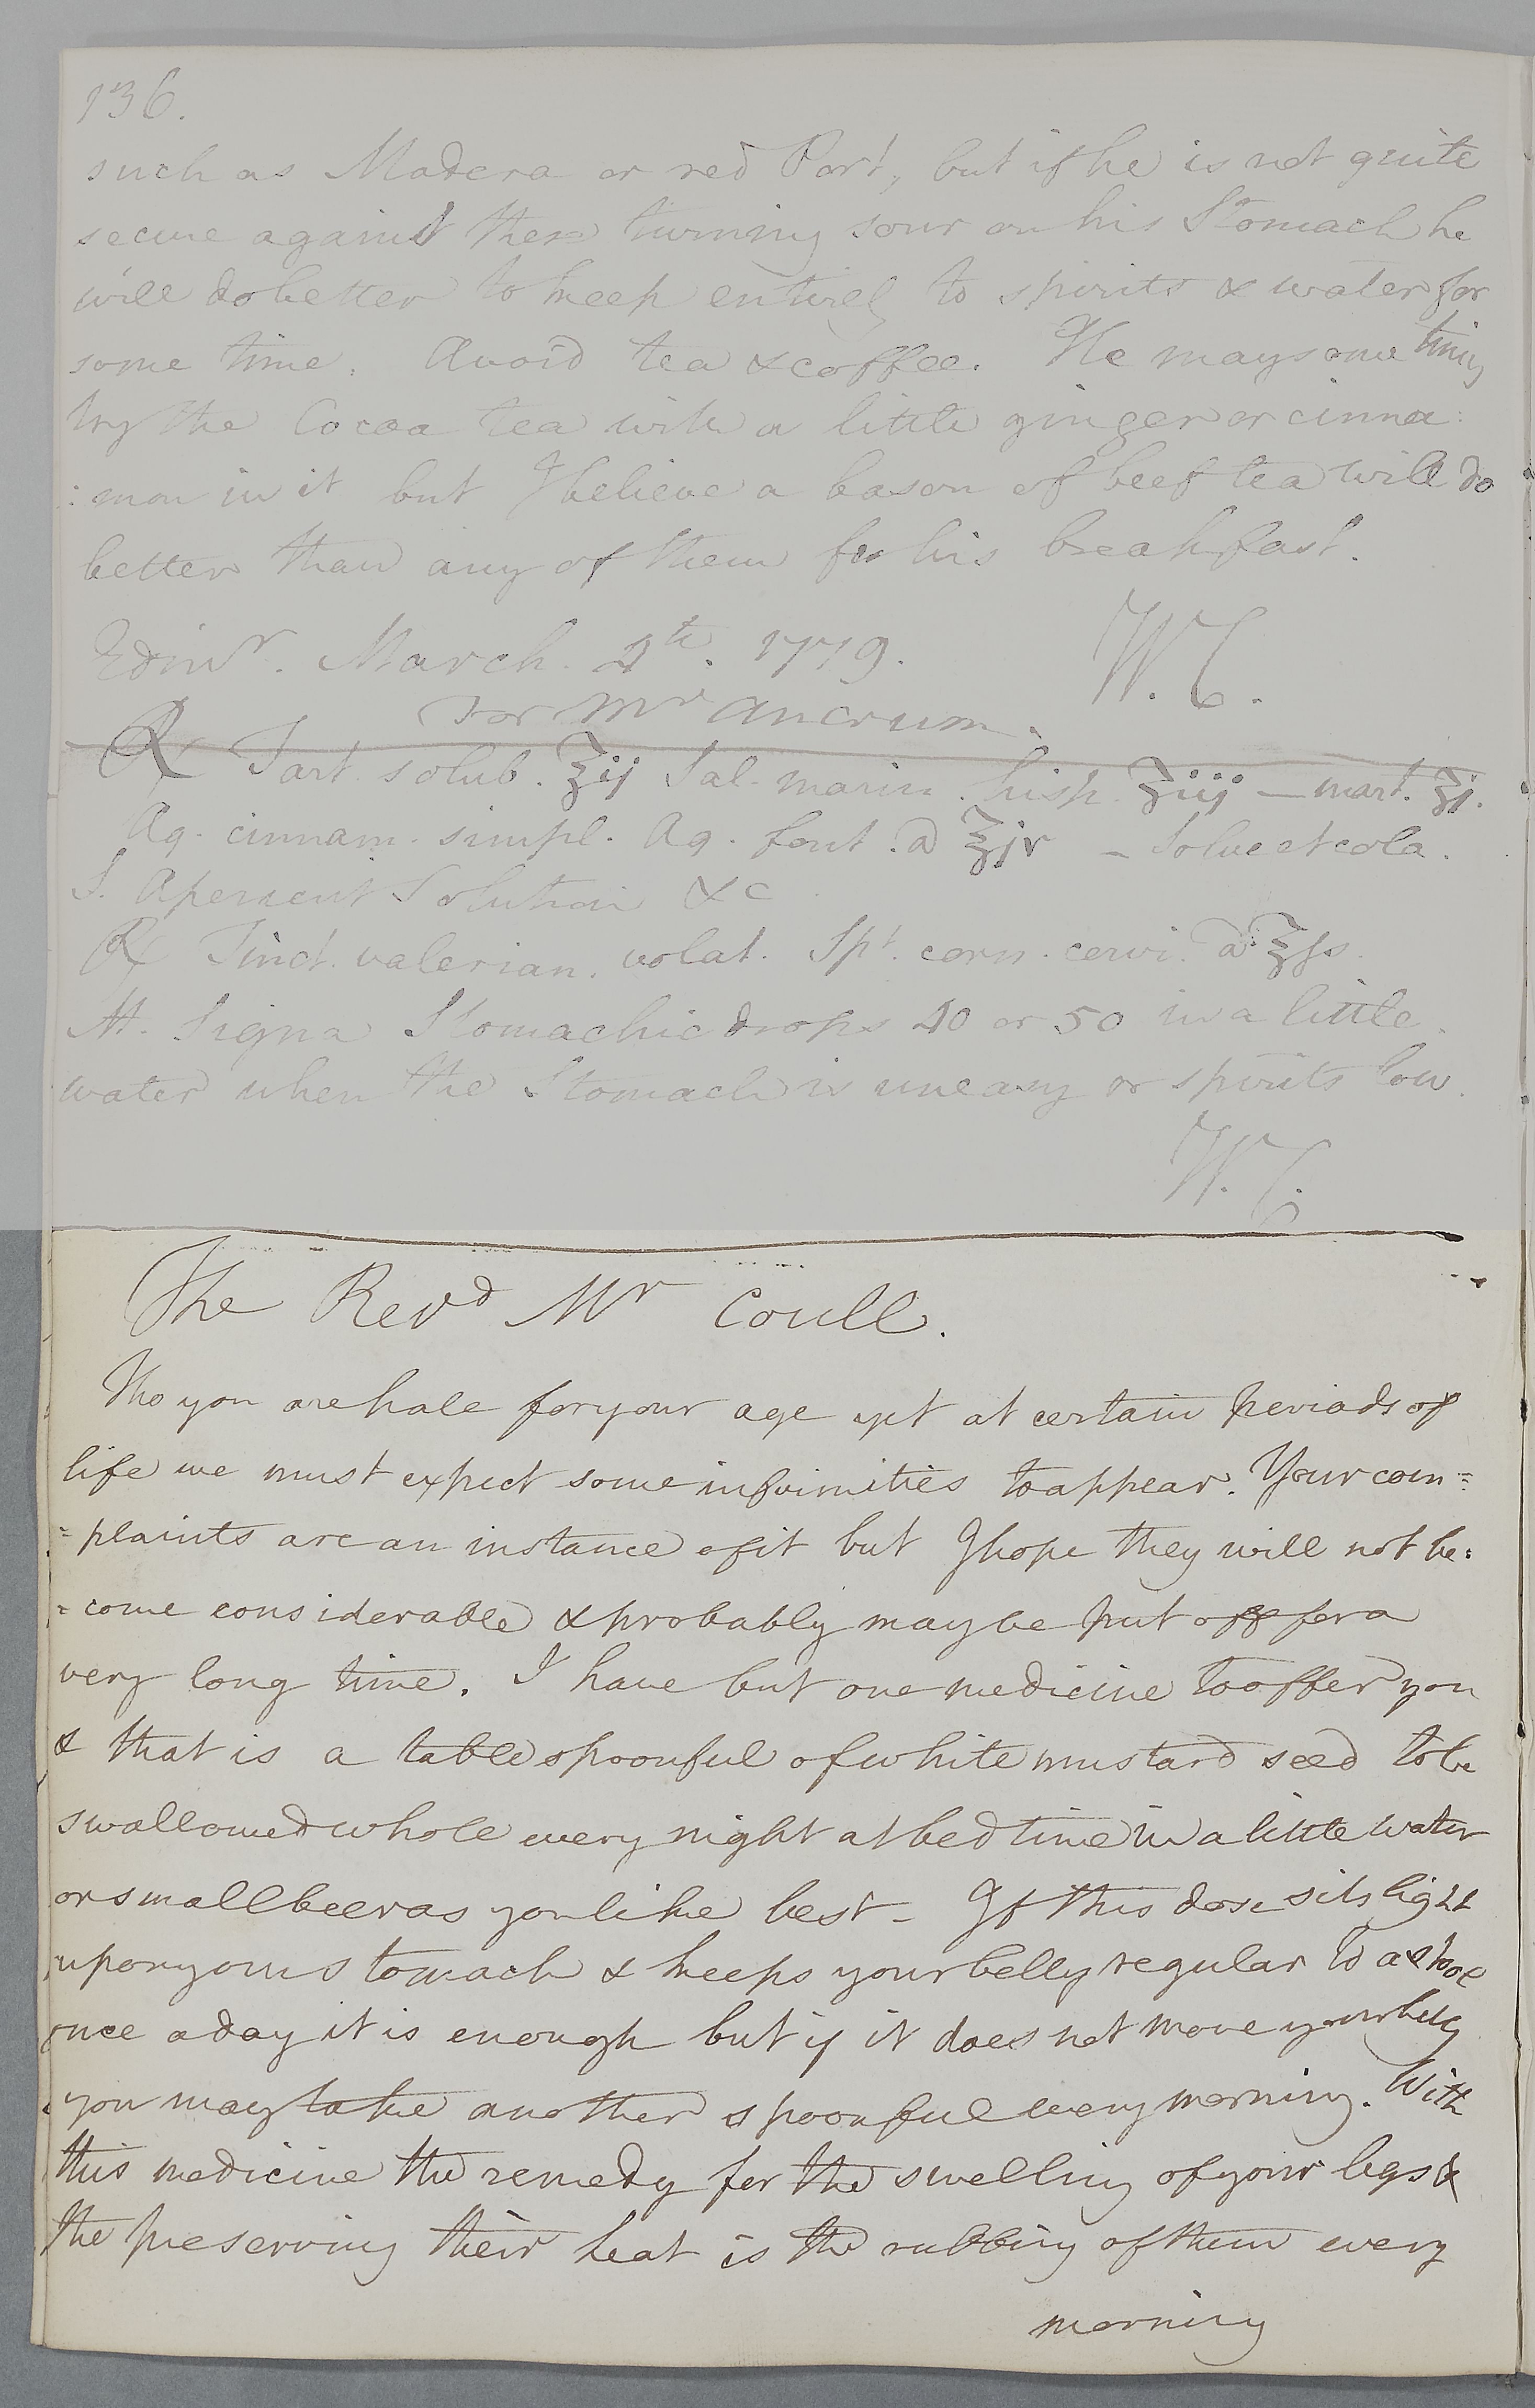 136.
such as Madera or red Port, but if he is not quite
secure against these turning sour on his Stomach he
will do better to keep entirely to spirits & water for
some time. Avoid tea & coffee. He may some times
try the Cocoa tea with a little ginger or cinna:
:mon in it but I believe a bason of beef tea will do
better than any of them for his breakfast.
Edinr. March. 2th. 1779.
W. C.
For Mr Ancrum.
℞ Tart. solub. ʒij Sal. marin. hisp. ʒiij — mart. ʒj.
Aq. cinnam. simpl. Aq. font. a ℥iv – Solve et cola.
S. Aperient Solution &c
℞ Tinct. valerian. volat. Spt. corn. cervi. a ℥ſs.
M. Signa Stomachic drops 40 or 50 in a little
water when the Stomach is uneasy or spirits low.
W. C.
The Revd Mr Coull.
Tho you are hale for your age yet at certain periods of
life we must expect some infirmities to appear. Your com=
=plaints are an instance of it but I hope they will not be:
=come considerable & probably may be put off for a
very long time. I have but one medicine to offer you
& that is a table spoonful of white mustard seed to be
swallowed whole every night at bed time in a little water
or small beer as you like best – If this dose sits light
upon your stomach & keeps your belly regular to a stool
once a day it is enough but if it does not move your belly
you may take another spoonful every morning. With
this medicine the remedy for the swelling of your legs &
the preserving their heat is the rubbing of them every
morning